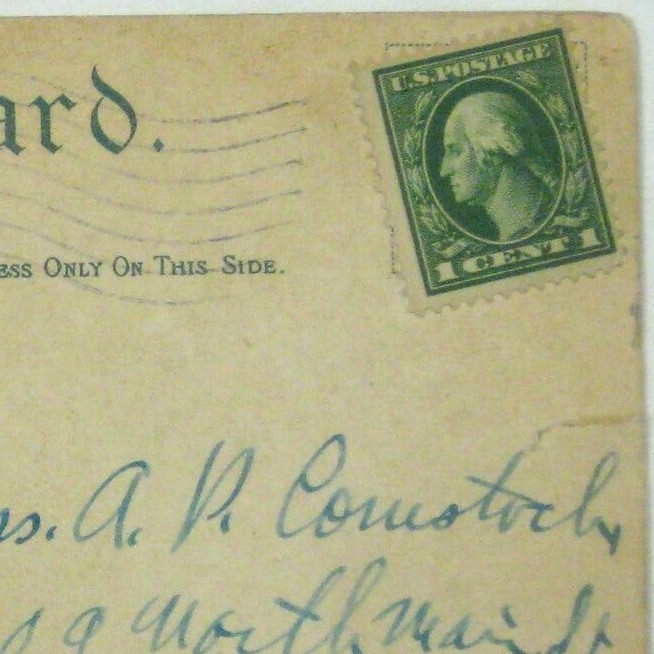 U.S. POSTAGE
1 CENT 1
ard.
ess Only On This Side.
rs. A. P. Comstock,
9 North Main St